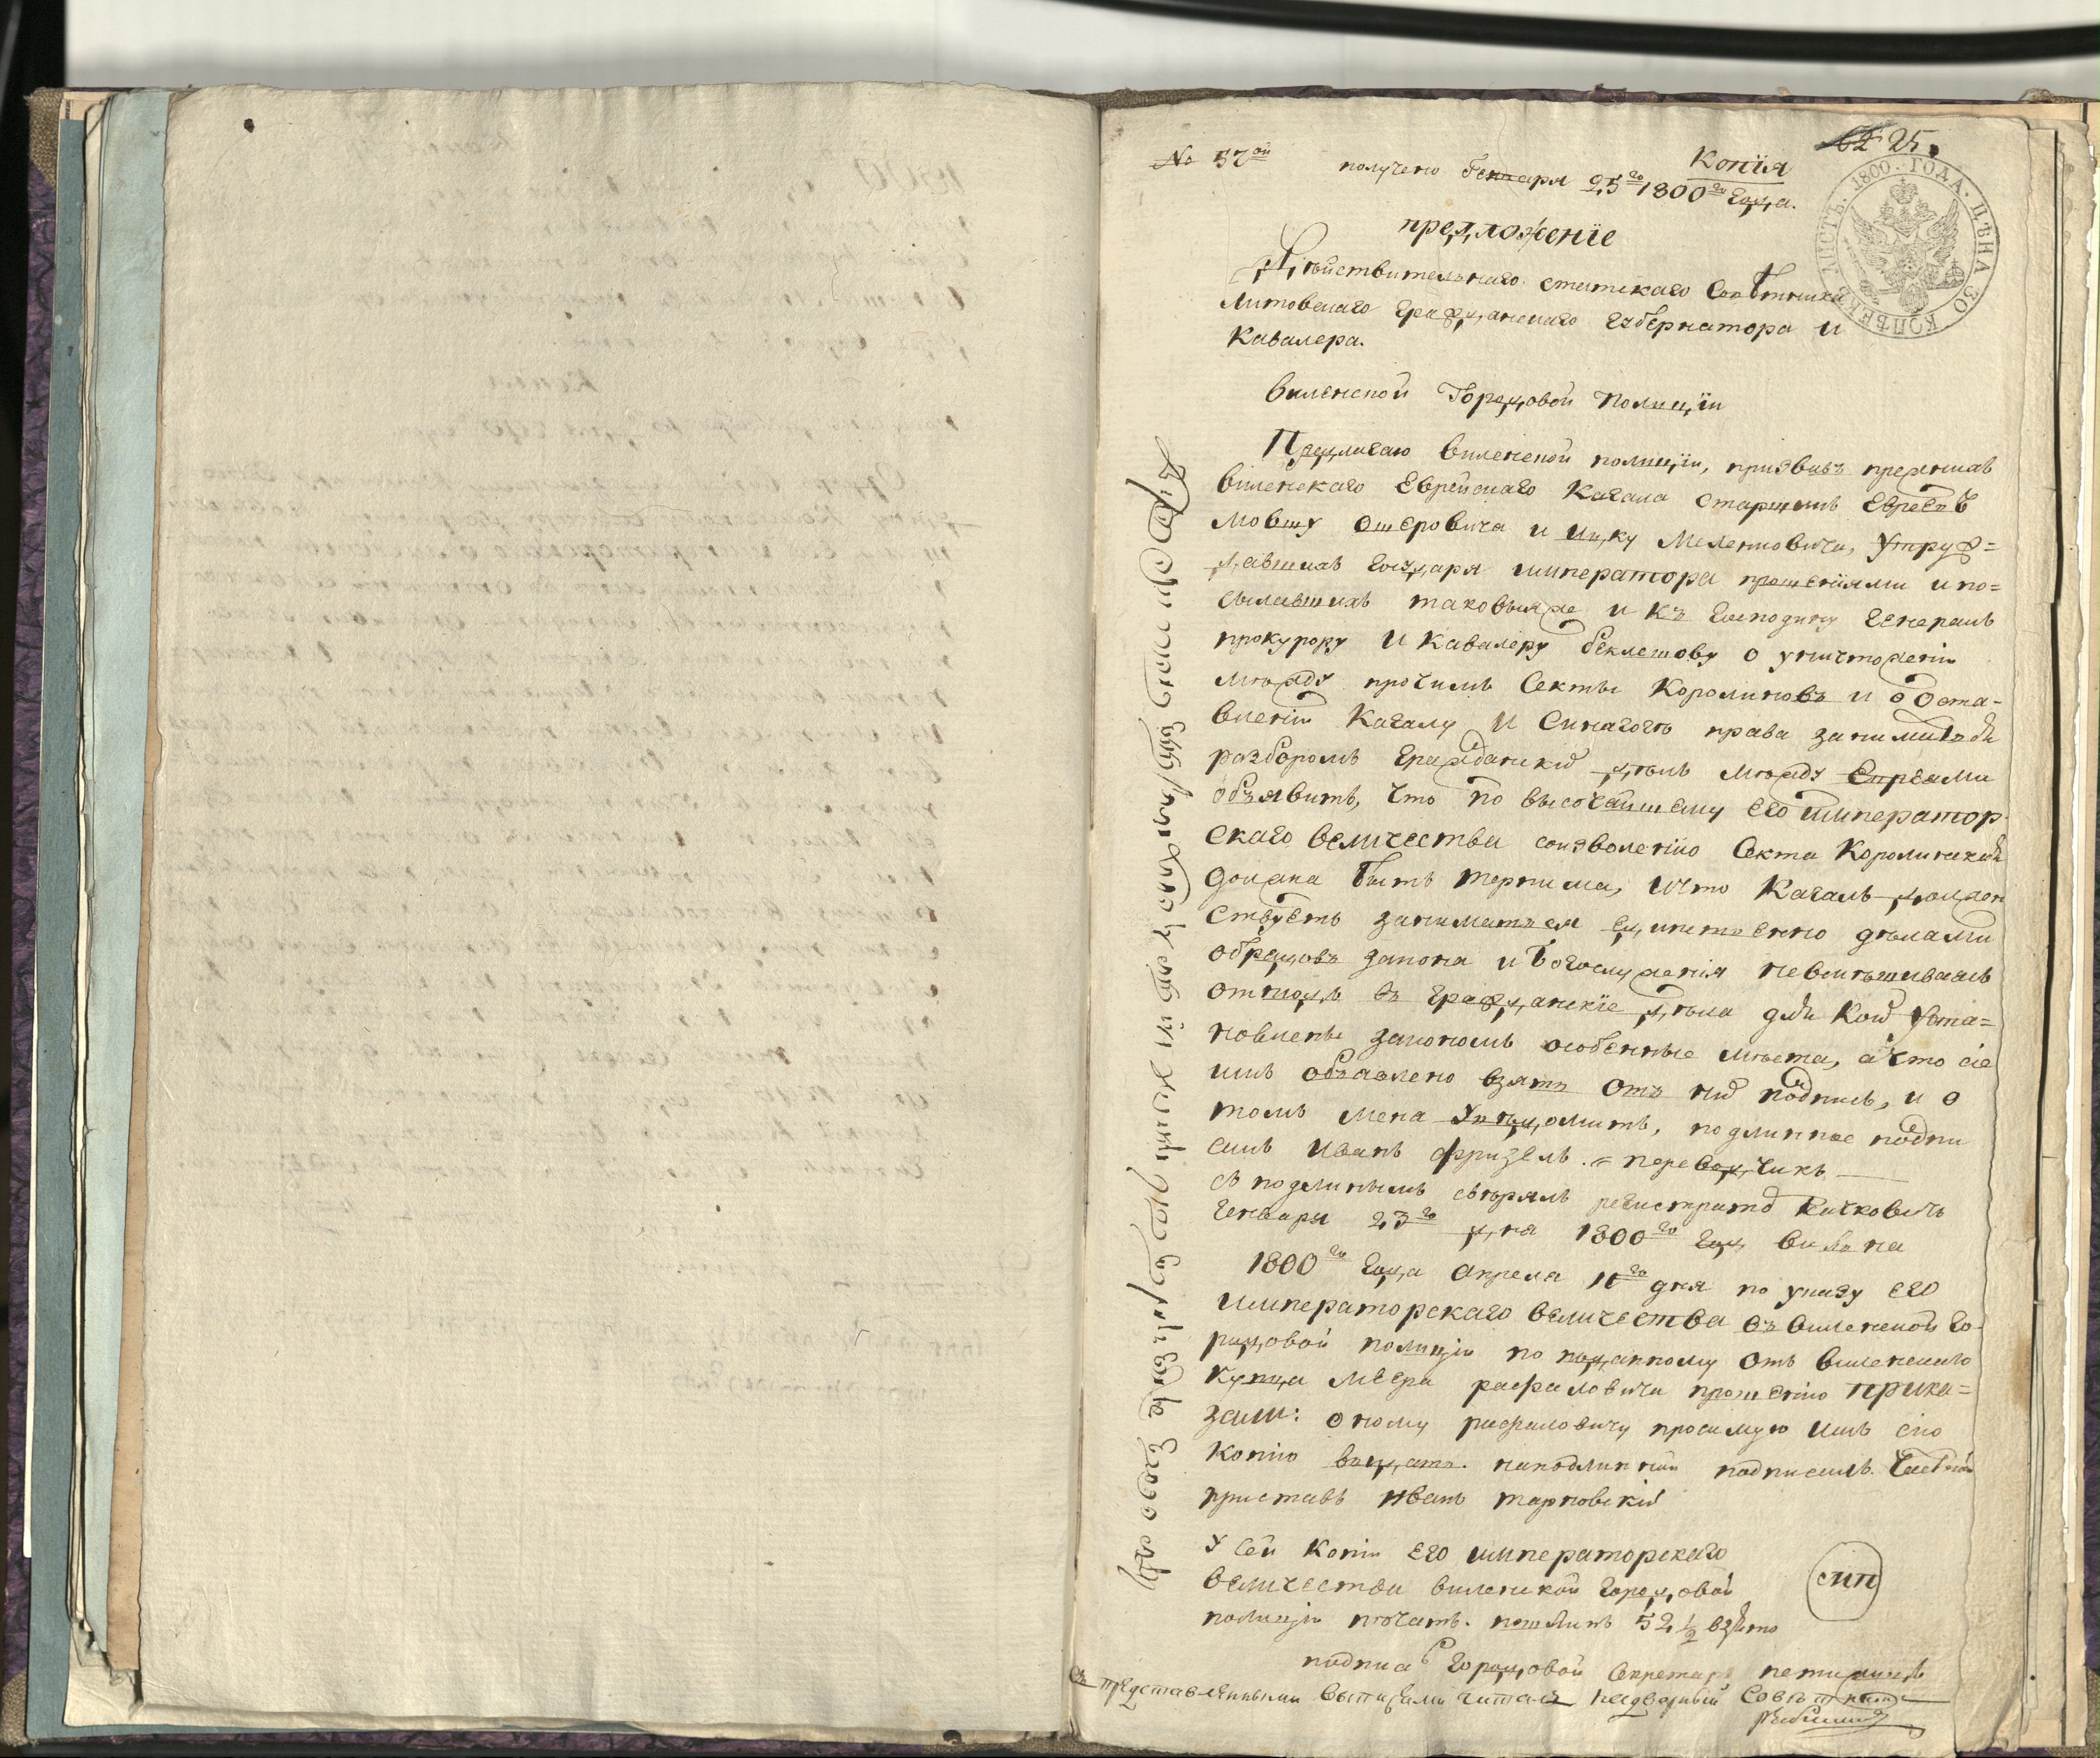 62 25.
№ 57ой получено Генваря 25го 1800го года.
Копїя
1800. ГОДА. ЦѢНА 30 КОПѢЕКЪ. ЛИСТЪ.
предложенїе
Дѣйствительнаго статскаго Совѣтника
Литовскаго гражданскаго губернатора и
Кавалера.
виленской Городовой полицїи
Предлагаю виленской полицїи, призвавъ прежнихъ
виленскаго Еврейскаго Кагала старшинъ Евреевъ
Мовшу Ошеровича и Ицку Мелеховича, утруж=
давшихъ Государя императора прошенїями и по=
сылавшихъ таковыяже и къ господину генералъ
прокурору и кавалеру беклешову о уничтоженїи
между прочимъ Секты Королиновъ и о оста=
вленїи Кагалу и Синагогѣ права заниматься
разборомъ гражданскихъ дѣлъ между Евреами
объявить, что по высочайшему его император
скаго величества соизволенїю Секта Королинская
должна быть терпима, и что Кагалъ должен
ствуетъ заниматься единственно дѣлами
обрядовъ закона и богослуженїя невмѣшиваясь
отнюдь въ гражданскїе дѣла для коихъ уста=
новлены закономъ особенные мѣста, а что сїе
имъ объявлено взять отъ нихъ подпись, и о
томъ меня увѣдомить, подлинное подпи
салъ иванъ фризель. = переводчикъ
съ подлинымъ свѣрялъ регистраторъ
Генваря 23го дня 1800го года вильна
1800го года апреля 11го дня по указу его
императорскаго величества въ виленской го=
родовой полицїи по поданному отъ виленскаго
купца Меера рафаловича прошенїю прика=
зали: оному рафаловичу просимую имъ сїю
копїю выдать. наподлинной подписалъ Частной
приставъ иванъ тарновскїй
У сей копїи его императорскаго
величества виленской городовой
полицїи печать. пошлинъ 52 ½ взято
смп
подписалъ городовой Секретарь
съ представленными выписями читалъ надворный совѣтникъ